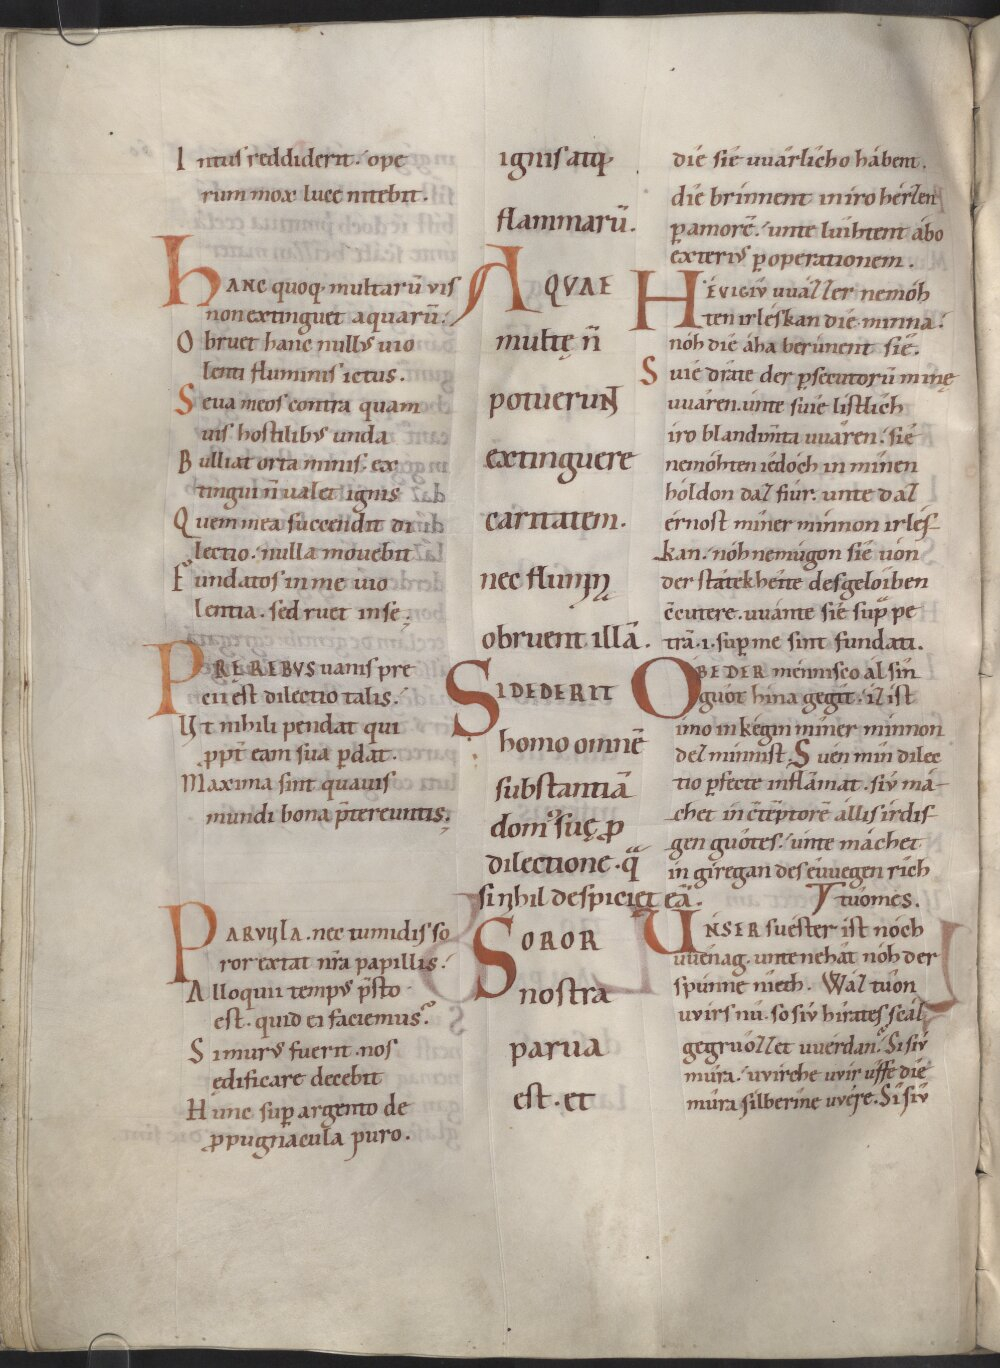 Intus reddiderit. ope
rum mox luce nitebit.
Hanc quoq; multarū vis
non extinguet aquarū.
Obruet hanc nullꝰ uio
lenti fluminis ictus.
Seua meos contra quam
uis hostilibꝰ unda
Bulliat orta minis. ex
tingui n̄ ualet ignis
Quem mea succendit di
lectio. nulla movebit
Fundatos in me uio
lentia. sed ruet in se.
PRE REBVS uanis pre
cii est dilectio talis.
Vt nihili pendat qui
ꝓpt̄ eam sua ꝑdat.
Maxima sint quauis
mundi bona p̄tereuntis.
PARVVLA. nec tumidis so
ror extat nr̄a papillis.
Alloquii tempꝰ p̄sto
est. quid ei faciemus.
Si murꝰ fuerit. nos
ędificare decebit
Hunc suꝑ argento de
ꝓpugnacula puro.
ignis atq;
flammarū.
AQVAE
multę n̄
potuerunt
extinguere
caritatem.
nec flumina
obruent illā.
SI DEDERIT
homo omnē
substantiā
domꝰ suę ꝓ
dilectione. q̄
si nihil despiciet eā.
SOROR
nostra
parua
est. et
díe síe uuárlicho hábent.
díe brínnent in íro hérzen
ꝑ amorē. unte lúihtent ábo
exteriꝰ ꝑ operationem.
HEVIGIV uuázzer nemóh
ten irléskan díe minna.
nóh díe áha berínnent síe.
Suíe dráte der ꝑsecutorū minę
uuáren. únte suíe listlích
íro blandim̄ta uuáren. síe
nemóhten íedoch in mínen
hóldon daz fíur. unte daz
érnost míner mínnon irlés-
kan. nóh nemúgon síe uón
der státekheíte des gelóiben
excutere. uuánte síe suꝑ pe
trā .i. suꝑ me sint fundati.
OBE DER ménnisco al sín
gúot hína gegít. iz ist
ímo in kégin míner mínnon
dez mínnist. Suén mín dilec
tio ꝑfecte inflāmat. sív má-
chet in cōtēptorē állis írdis-
gen gúotes. únte máchet
in gíregan des éuuegen rích
túomes.
UNSER suéster ist nóch
uuénag. unte nehát nóh der
spúnne níeth. Waz túon
uvirs nú. so sív hírates scál
gegrúozzet uuérdan. Si sív
múra. uvírche uvir úffe díe
múra silberíne uvére. Si sív